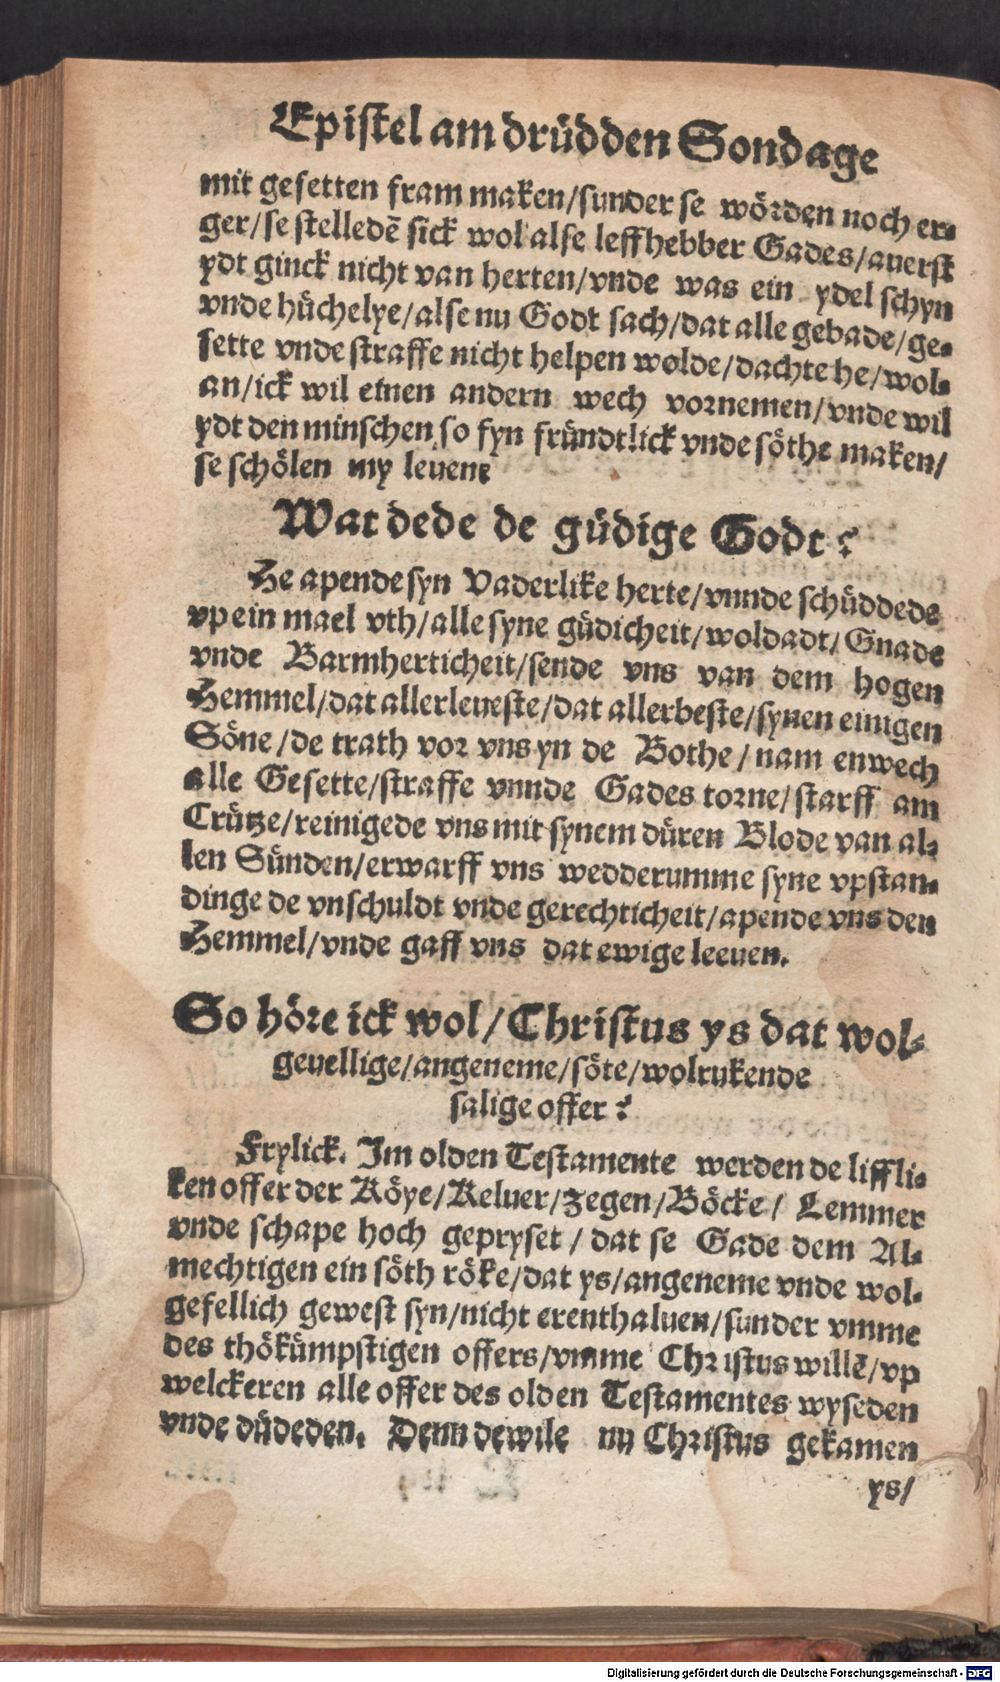 Epistel am drüdden Sondage
mit gesetten fram maken/sunder se wörden noch er-
ger/se stelledē sick wol alse leffhebber Gades/auerst
ydt ginck nicht van herten/vnde was ein ydel schyn
vnde hüchelye/alse nu Godt sach/dat alle gebade/ge-
sette vnde straffe nicht helpen wolde/dachte he/wol-
an/ick wil einen andern wech vornemen/vnde wil
ydt den minschen so fyn fründtlick vnde söthe maken/
se schölen my leuen:
Wat dede de güdige Godt?
He apende syn Vaderlike herte/vnnde schüddede
vp ein mael vth/alle syne güdicheit/woldadt/Gnade
vnde Barmherticheit/sende vns van dem hogen
Hemmel/dat allerleueste/dat allerbeste/synen einigen
Söne/de trath vor vns yn de Bothe/nam enwech
alle Gesette/straffe vnnde Gades torne/starff am
Crütze/reinigede vns mit synem düren Blode van al-
len Sünden/erwarff vns wedderumme syne vpstan-
dinge de vnschuldt vnde gerechticheit/apende vns den
Hemmel/vnde gaff vns dat ewige leeuen.
So höre ick wol/Christus ys dat wol-
geuellige/angeneme/söte/wolrukende
salige offer?
Frylick. Im olden Testamente werden de liffli-
ken offer der Köye/Keluer/zegen/Böcke/ Lemmer
vnde schape hoch gepryset/dat se Gade dem Al-
mechtigen ein söth röke/dat ys/angeneme vnde wol-
gefellich gewest syn/nicht erenthaluen/sunder vmme
des thökümpstigen offers/vmme Christus willē/vp
welckeren alle offer des olden Testamentes wyseden
vnde düdeden. Denn dewile nu Christus gekamen
ys/
Digitalisierung gefördert durch die Deutsche Forschungsgemeinschaft - DFG